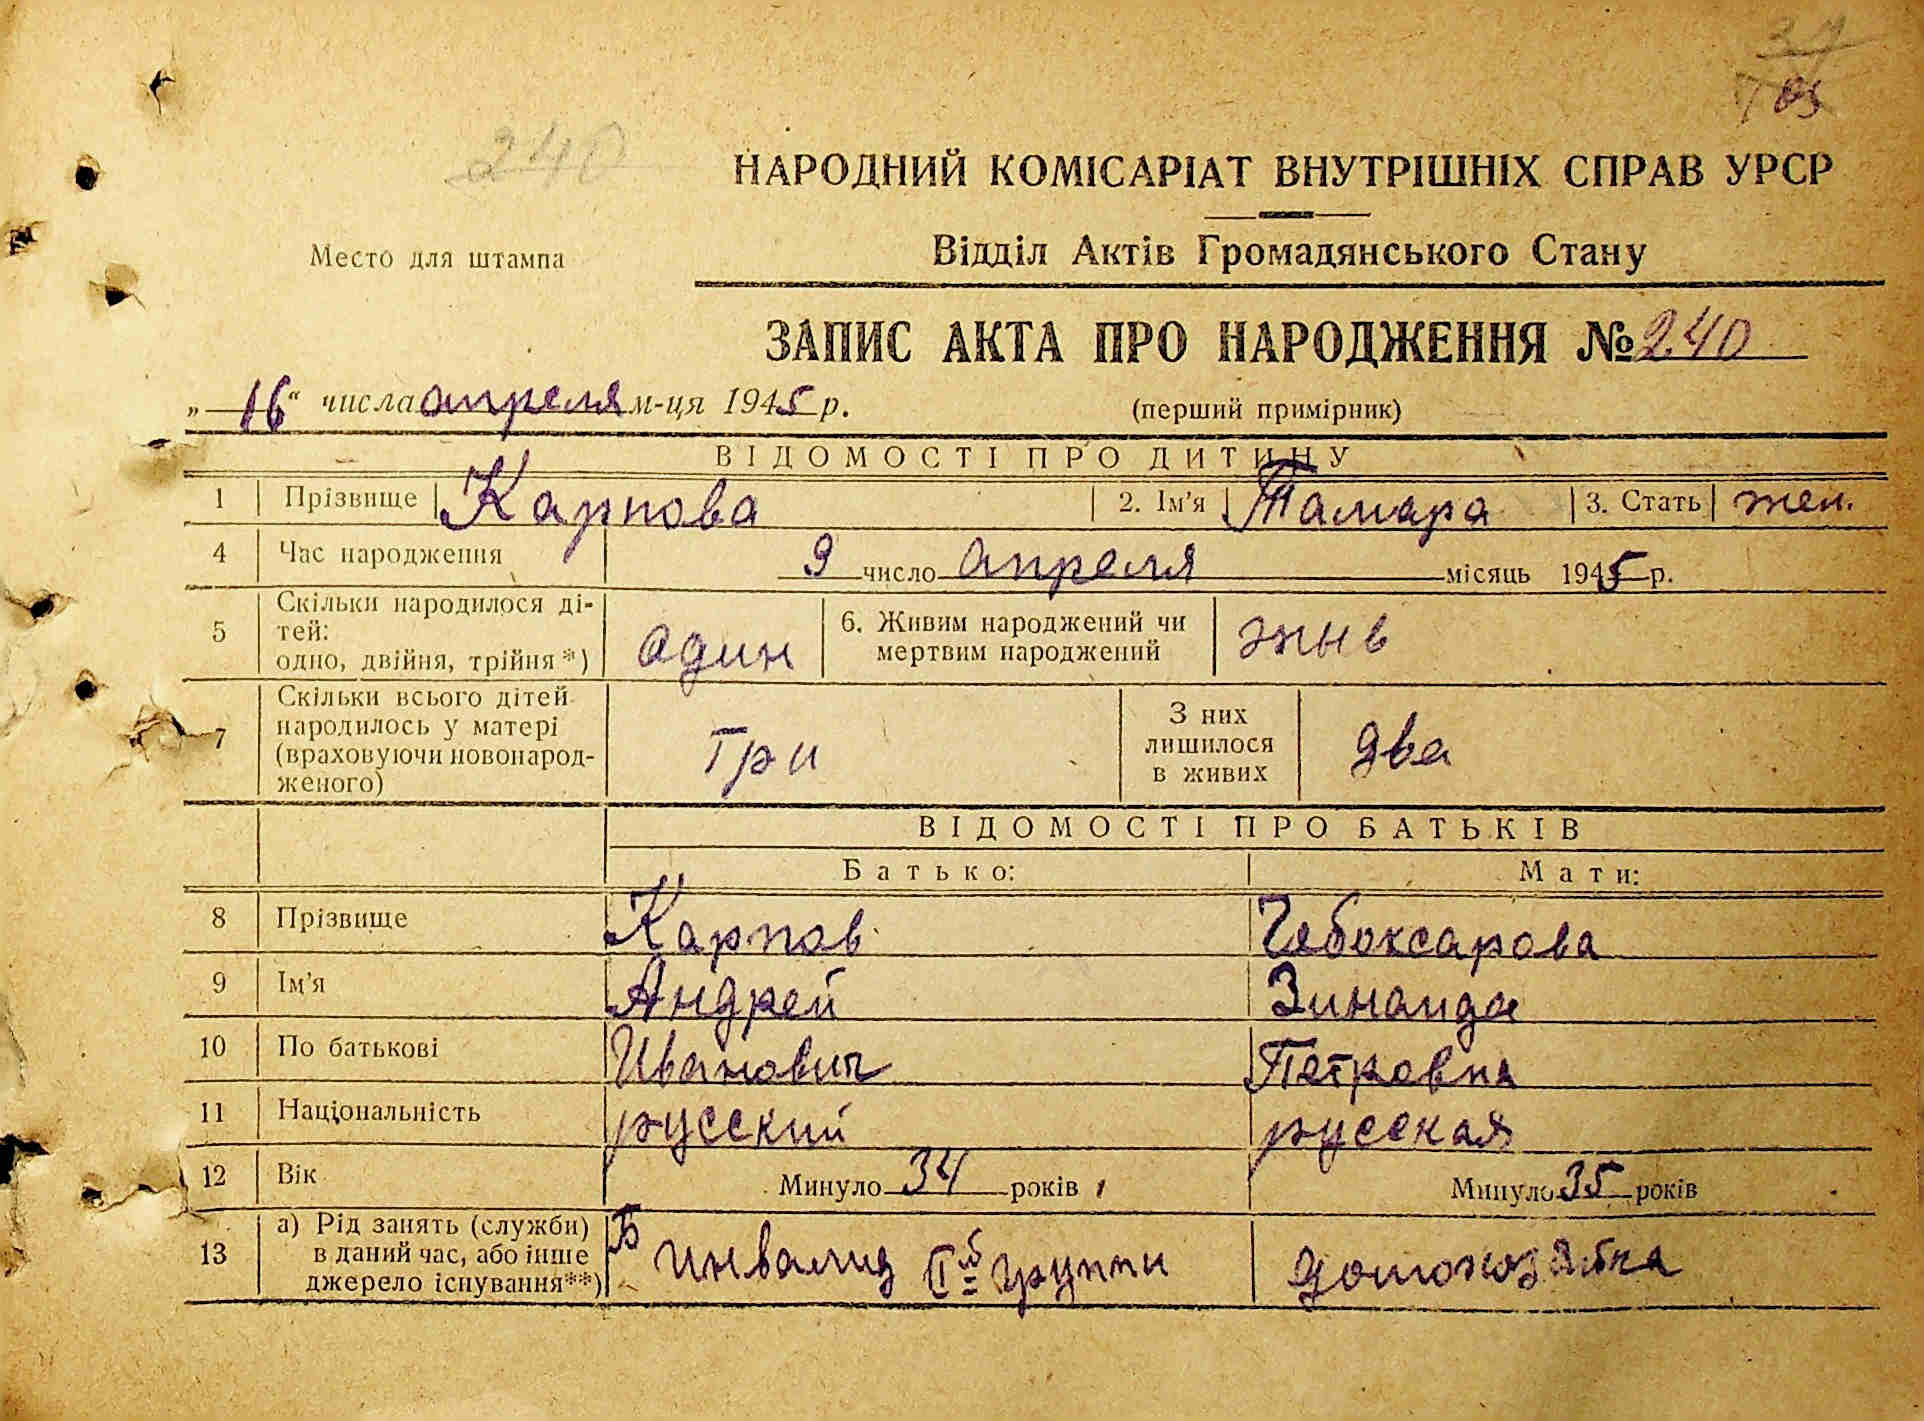 240
НАРОДНИЙ КОМІСАРІАТ ВНУТРІШНІХ СПРАВ УРСР
Место для штампа
Відділ Актів Громадянського Стану
ЗАПИС АКТА ПРО НАРОДЖЕННЯ № 240
„16“ числа апреля м-ця 1945 р. (перший примірник)
ВІДОМОСТІ ПРО ДИТИНУ
1 Прізвище Карпова 2. Ім’я Тамара 3. Стать жен.
4 Час народження 9 число апреля місяць 1945 р.
5 Скільки народилося ді-
тей:
одно, двійня, трійня*) один 6. Живим народжений чи
мертвим народжений жив
7 Скільки всього дітей
народилось у матері
(враховуючи новонарод-
женого) три З них
лишилося
в живих два
ВІДОМОСТІ ПРО БАТЬКІВ
Батько: Мати:
8 Прізвище Карпов Чебоксарова
9 Ім’я Андрей Зинаида
10 По батькові Иванович Петровна
11 Національність русский русская
12 Вік Минуло 34 років Минуло 35 років
13 а) Рід занять (служби)
в даний час, або інше
джерело існування**) инвалид II группи домохозяйка